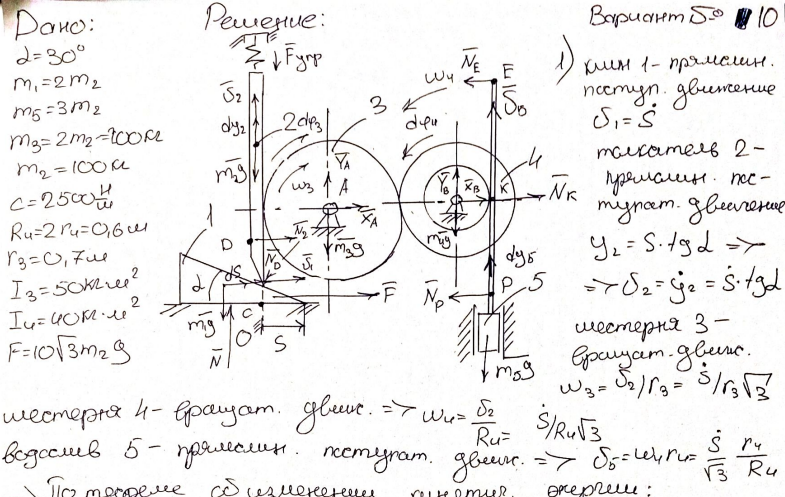 Дано:
α=30°
m₁=2m₂
m₅=3m₂
m₃=2m₂=200кг
m₂=100кг
c=2500 Н/м
R₄=2r₄=0,6м
r₃=0,7м
I₃=50кг·м²
I₄=40кг·м²
F=10√3m₂g
Решение:
F̅упр
υ̅₂
dy₂
2
dφ₃
3
m̅₂g
ω₃
Y̅A
A
X̅A
m̅₃g
1
D
N̅₂
N̅D
υ̅₁
α
dS
F̅
m̅₁g
C
O
S
N̅
ω₄
dφ₄
N̅E
E
υ̅B
4
Y̅B
X̅B
K
N̅K
m̅₄g
dy₅
N̅P
P
5
m̅₅g
Вариант 10
1) клин 1- прямолин.
поступ. движение
υ₁=Ṡ
толкатель 2-
прямолин. пос-
тупат. движение
y₂=S·tgα =>
=> υ₂=ẏ₂=Ṡ·tgα
шестерня 3-
вращат. движ.
ω₃=υ₂/r₃=Ṡ/r₃√3
шестерня 4-вращат. движ. => ω₄=υ₂/R₄=Ṡ/R₄√3
водослив 5- прямолин. поступат. движ. => υ₅=ω₄r₄=Ṡ/√3 r₄/R₄
По теореме об изменении кинетич. энергии: